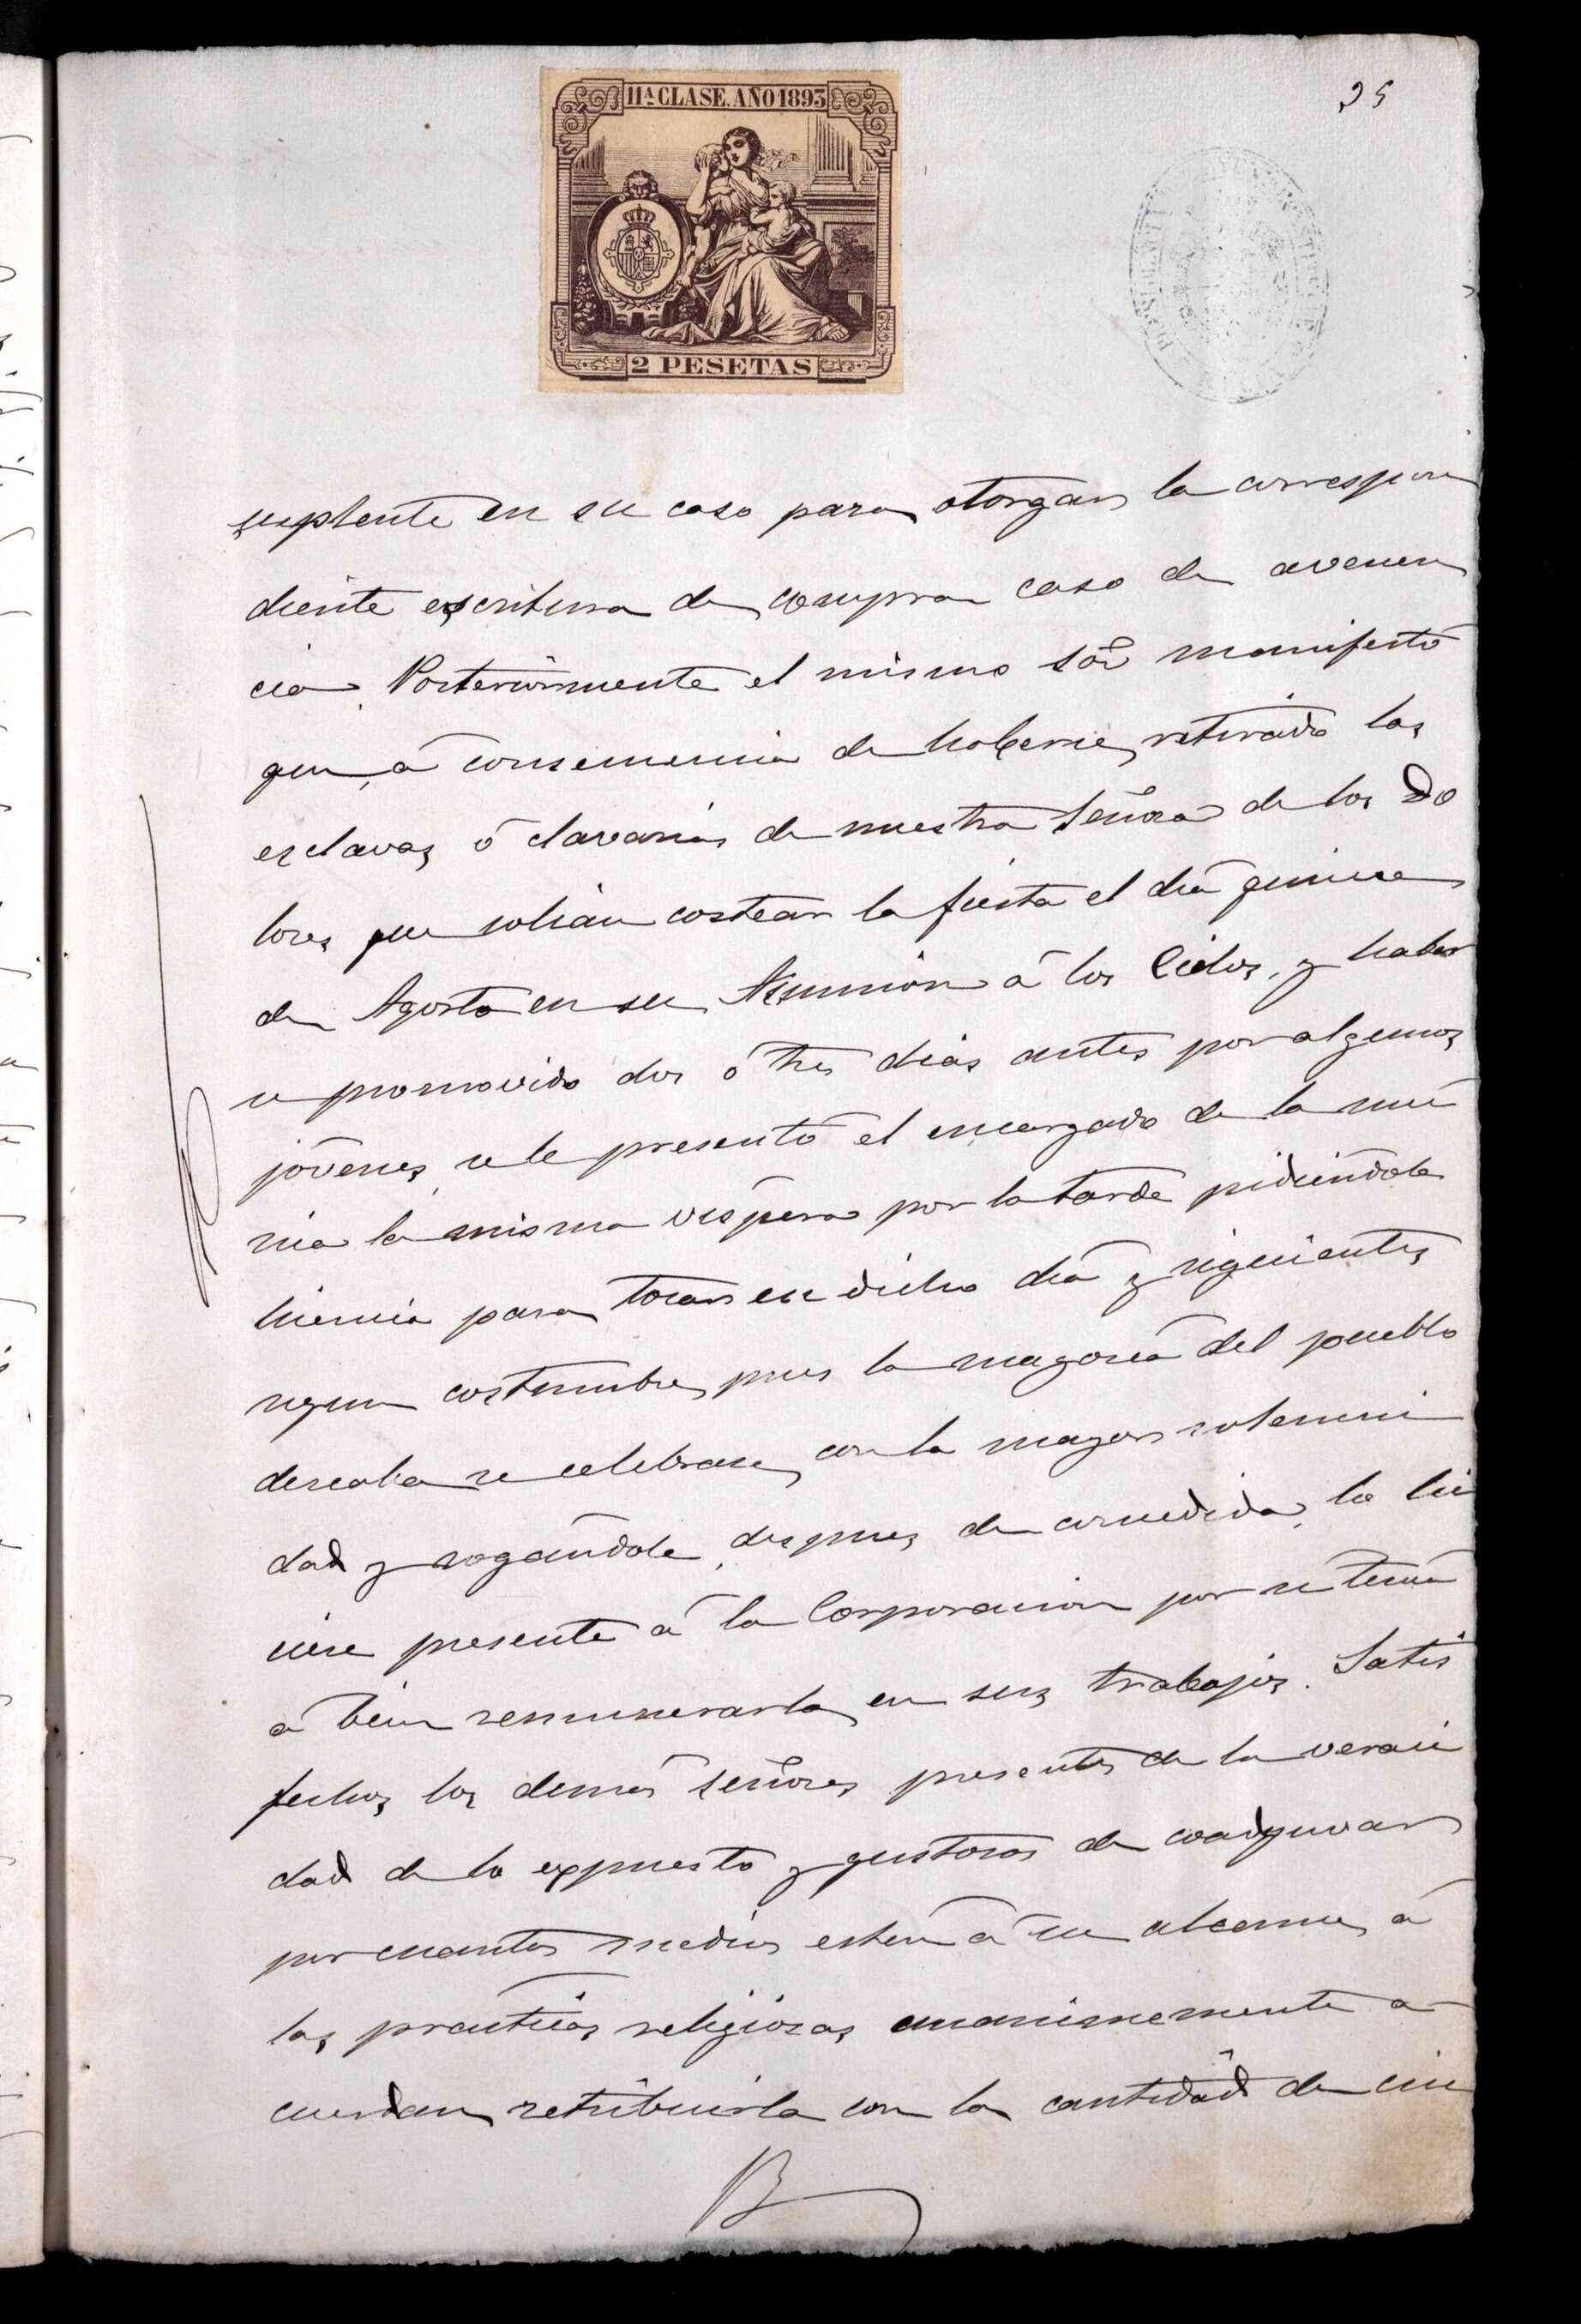 11ª CLASE. AÑO 1893
25
2 PESETAS
suplente en su caso para otorgar la correspon
diente escritura de compra caso de avenen
cia. Posteriormente el mismo Sor manifestó
que, á consecuencia de haberse retirado las
esclavas ó clavarias de nuestra Señora de los Do
lores que solian costear la fiesta el dia quince
de Agosto en su Asunción á los Cielos, y haber
se promovido dos ó tres dias antes por algunos
jóvenes, se le presentó el encargado de la mú
sica la misma vispera por la tarde pidiéndole
licencia para tocar en dicho dia y siguientes
segun costumbre, pues la mayoría del pueblo
deseaba se celebrase con la mayor solemni
dad y rogándole, despues de concedida, lo hi
ciese presente á la Corporacion por si tenia
á bien remunerarla en sus trabajos. Satis
fechos los demás señores presentes de la veraci
dad de lo expuesto y gustosos de coadyuvar
por cuantos medios estén á su alcance á
las prácticas religiosas unanimemente a
cuerdan retribuirla con la cantidad de cin